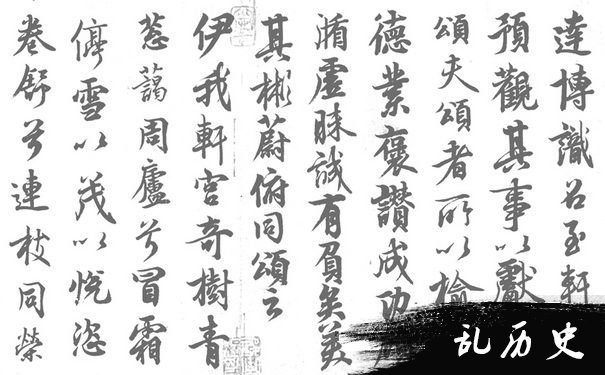 達博識召至軒
預觀其事以獻
頌夫頌者所以揄
德業褒讚成功
循虛昧誠有負矣美
其彬蔚俯同頌云
伊我軒宮奇樹青
蔥藹周廬兮冒霜
停雪以茂以悅恣
卷舒兮連枝同榮
乱历史